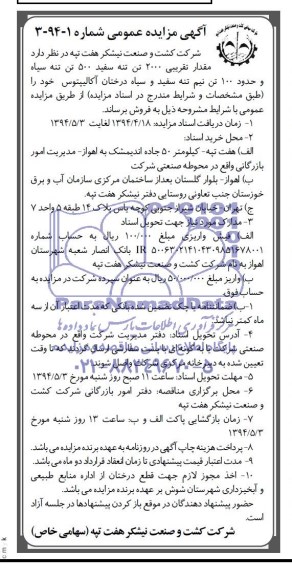 آگهی مزایده عمومی شماره ۱-۹۴-۳
شرکت کشت و صنعت نیشکر هفت تپه در نظر دارد
مقدار تقریبی ۲۰۰۰ تن تنه سفید ۵۰۰ تن تنه سیاه
و حدود ۱۰۰ تن نیم تنه سفید و سیاه درختان آکالیپتوس خود را
(طبق مشخصات و شرایط مندرج در اسناد مزایده) از طریق مزایده
عمومی با شرایط مشروحه ذیل به فروش برساند.
۱- زمان دریافت اسناد مزایده: ۱۳۹۴/۴/۱۸ لغایت ۱۳۹۴/۵/۳
۲- محل خرید اسناد:
الف) هفت تپه- کیلومتر ۵۰ جاده اندیمشک به اهواز- مدیریت امور
بازرگانی واقع در محوطه صنعتی شرکت
ب) اهواز- بلوار گلستان بعداز ساختمان مرکزی سازمان آب و برق
خوزستان جنب تعاونی روستایی دفتر نیشکر هفت تپه.
ج) تهران- خیابان شیراز جنوبی کوچه یاس پلاک ۱۴ طبقه ۵ واحد ۷
۳- مدارک مورد نیاز جهت تحویل اسناد
الف) فیش واریزی مبلغ ۱۰۰/۰۰۰ ریال به حساب شماره
بانک انصار شعبه شهرستان
اهواز به نام شرکت کشت و صنعت نیشکر هفت تپه
ب) واریز مبلغ ۵۰/۰۰۰/۰۰۰ ریال به عنوان سپرده شرکت در مزایده به
حساب فوق
یا ضمانتنامه یا چک تضمین شده بانکی که مدت اعتبار آن از سه
ماه کمتر نباشد.
۴- آدرس تحویل اسناد: دفتر مدیریت شرکت واقع در محوطه
صنعتی شرکت یا به گونه‌ای با پست سفارشی ارسال گردد که تا وقت
تعیین شده به دبیرخانه مرکزی شرکت واصل شوند
۵- مهلت تحویل اسناد: ساعت ۱۱ صبح روز شنبه مورخ ۱۳۹۴/۵/۳
۶- محل برگزاری مناقصه: دفتر امور بازرگانی شرکت کشت
و صنعت نیشکر هفت تپه
۷- زمان بازگشایی پاکت الف و ب: ساعت ۱۳ روز شنبه مورخ
۱۳۹۴/۵/۳
۸- پرداخت هزینه چاپ آگهی در روزنامه به عهده برنده مزایده می باشد.
۹- مدت اعتبار قیمت پیشنهادی تا زمان انعقاد قرارداد دو ماه می باشد.
۱۰- اخذ مجوز لازم جهت قطع درختان از اداره منابع طبیعی
و آبخیزداری شهرستان شوش بر عهده برنده مزایده می باشد.
حضور پیشنهاد دهندگان در موقع باز کردن پیشنهادها در جلسه آزاد
است.
شرکت کشت و صنعت نیشکر هفت تپه (سهامی خاص)